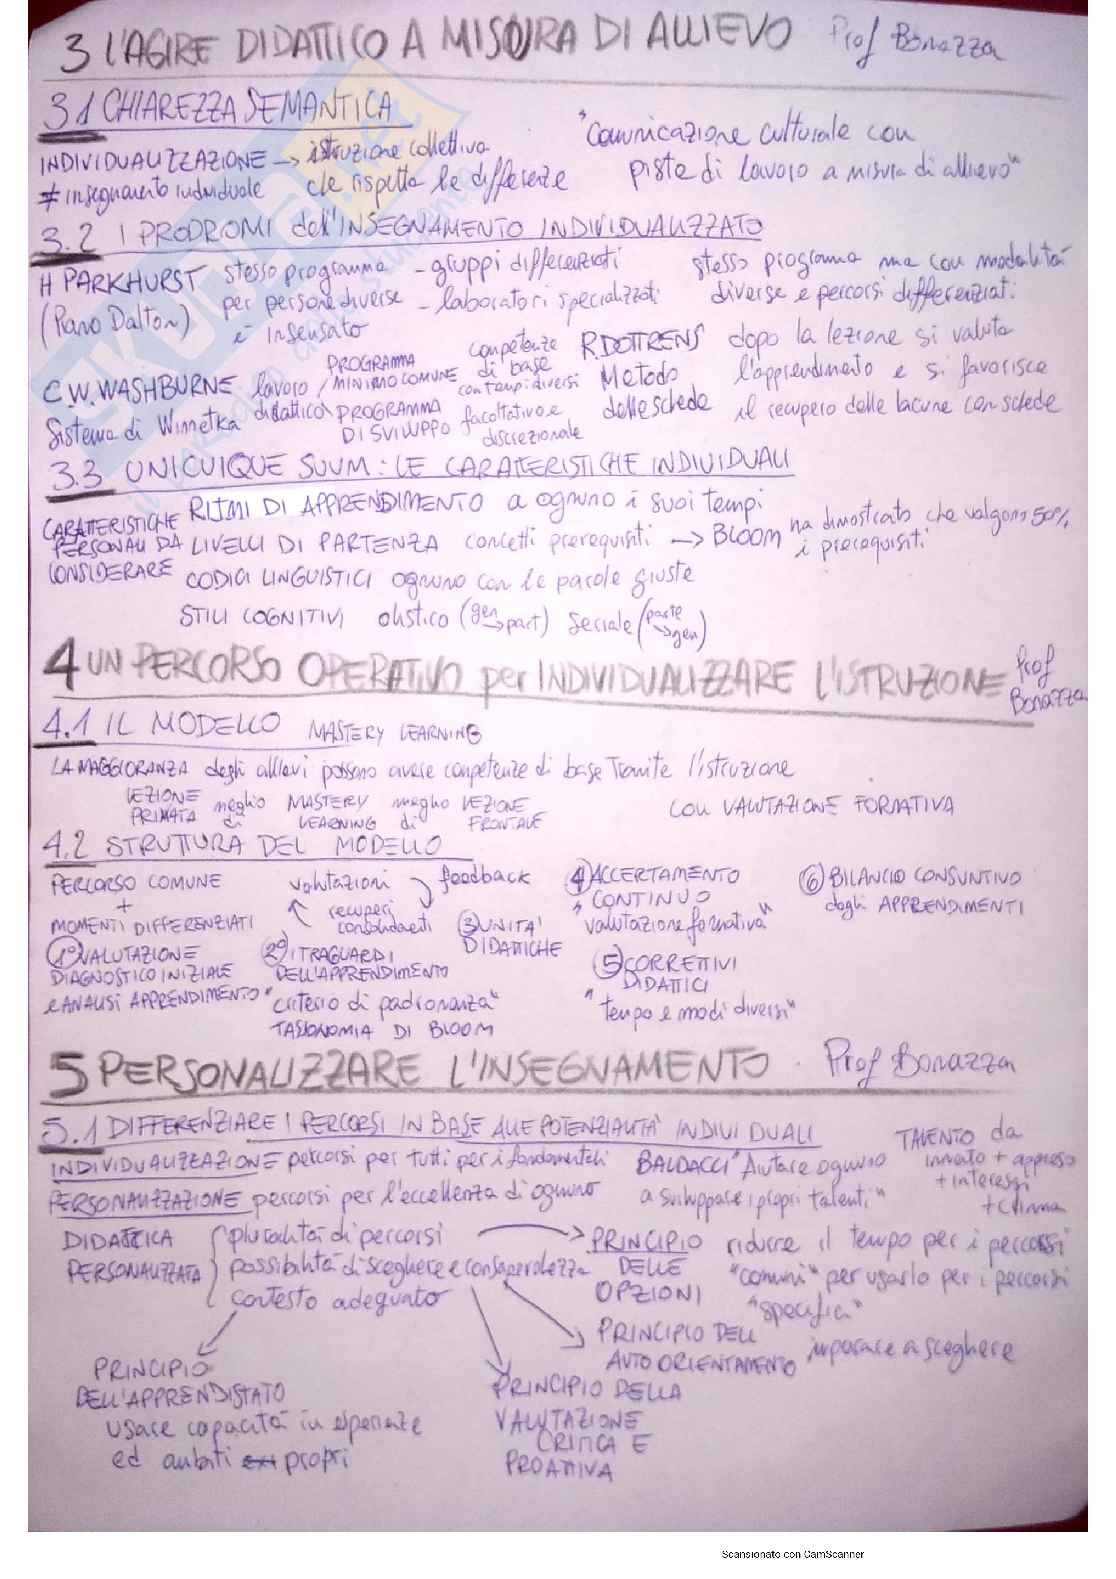 3 L'AGIRE DIDATTICO A MISURA DI ALLIEVO Prof Bonazza
3.1 CHIAREZZA SEMANTICA
INDIVIDUALIZZAZIONE → istruzione collettiva
≠ insegnamento individuale che rispetta le differenze
"Comunicazione culturale con
piste di lavoro a misura di allievo"
3.2 I PRODROMI dell'INSEGNAMENTO INDIVIDUALIZZATO
H PARKHURST stesso programma - gruppi differenziati stesso programma ma con modalità
(Piano Dalton) per persone diverse - laboratori specializzati diverse e percorsi differenziati
è insensato
C.W. WASHBURNE lavoro / PROGRAMMA MINIMO COMUNE competenze di base con tempi diversi
Sistema di Winnetka didattico \ PROGRAMMA DI SVILUPPO facoltativo e discrezionale
R. DOTTRENS dopo la lezione si valuta
Metodo l'apprendimento e si favorisce
delle schede il recupero delle lacune con schede
3.3 UNICUIQUE SUUM: LE CARATTERISTICHE INDIVIDUALI
CARATTERISTICHE PERSONALI DA CONSIDERARE
RITMI DI APPRENDIMENTO a ognuno i suoi tempi
LIVELLI DI PARTENZA concetti prerequisiti → BLOOM ha dimostrato che valgono 50% i prerequisiti
CODICI LINGUISTICI ognuno con le parole giuste
STILI COGNITIVI olistico (gen → part) seriale (parte → gen)
4 UN PERCORSO OPERATIVO per INDIVIDUALIZZARE L'ISTRUZIONE Prof Bonazza
4.1 IL MODELLO MASTERY LEARNING
LA MAGGIORANZA degli allievi possono avere competenze di base Tramite l'istruzione
LEZIONE PRIVATA meglio di MASTERY LEARNING meglio di LEZIONE FRONTALE con VALUTAZIONE FORMATIVA
4.2 STRUTTURA DEL MODELLO
PERCORSO COMUNE
+
MOMENTI DIFFERENZIATI
valutazioni feedback
recuperi
consolidamenti
1° VALUTAZIONE
DIAGNOSTICO INIZIALE
e ANALISI APPRENDIMENTO
2° I TRAGUARDI
DELL'APPRENDIMENTO
"criterio di padronanza"
TASSONOMIA DI BLOOM
3 UNITA'
DIDATTICHE
4 ACCERTAMENTO
CONTINUO
"valutazione formativa"
5 CORRETTIVI
DIDATTICI
"tempo e modi diversi"
6 BILANCIO CONSUNTIVO
degli APPRENDIMENTI
5 PERSONALIZZARE L'INSEGNAMENTO Prof Bonazza
5.1 DIFFERENZIARE I PERCORSI IN BASE ALLE POTENZIALITA' INDIVIDUALI
INDIVIDUALIZZAZIONE percorsi per tutti per i fondamentali
PERSONALIZZAZIONE percorsi per l'eccellenza di ognuno
BALDACCI "Aiutare ognuno
a sviluppare i propri talenti"
TALENTO da
innato + appreso
+ interessi
+ clima
DIDATTICA PERSONALIZZATA
pluralità di percorsi
possibilità di scegliere e consapevolezza
contesto adeguato
PRINCIPIO DELLE OPZIONI
ridurre il tempo per i percorsi
"comuni" per usarlo per i percorsi
"specifici"
PRINCIPIO DELL
AUTO ORIENTAMENTO imparare a scegliere
PRINCIPIO
DELL'APPRENDISTATO
usare capacità in esperienze
ed ambiti propri
PRINCIPIO DELLA
VALUTAZIONE
CRITICA E
PROATTIVA
Scansionato con CamScanner